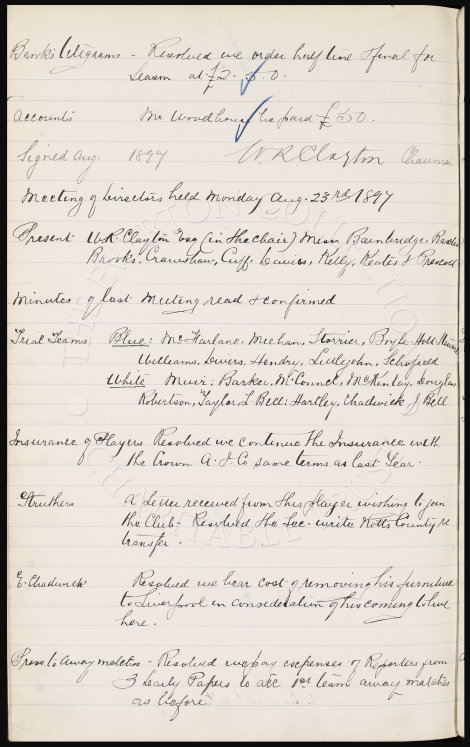 Brooks Telegrams - Resolved we order half time & final for
Season at £2. 5. 0.
Accounts Mr Woodhouse be paid £50.
Signed Aug. 1897 W.R. Clayton Chairman
Meeting of Directors held Monday Aug. 23rd 1897
Present W.R. Clayton Esq (in the chair) Messrs Bainbridge,
Brooks, Crawshaw, Cuff, Davies, Kelly, Keates & Prescott
Minutes of last Meeting read & confirmed
Trial Teams Blue: McFarlane, Meehan, Storrier, Boyle Holt
Williams, Divers, Hendry, Littlejohn, Schofield
White Muir: Barker, McConnel, McKinlay, Douglas
Robertson, Taylor, L Bell: Hartley, Chadwick J Bell
Insurance of Players Resolved we continue the Insurance with
the Crown A. I. Co same terms as last Year.
Struthers A Letter received from this player wishing to join
the Club - Resolved the Sec. write Notts County re
transfer.
E. Chadwick Resolved we bear cost of removing his furniture
to Liverpool in consideration of his coming to live
here.
Press to away matches - Resolved we pay expenses of Reporters from
3 Daily Papers to all 1st team away matches
as before
THE EVERTON COLLECTION
CHARITABLE TRUST